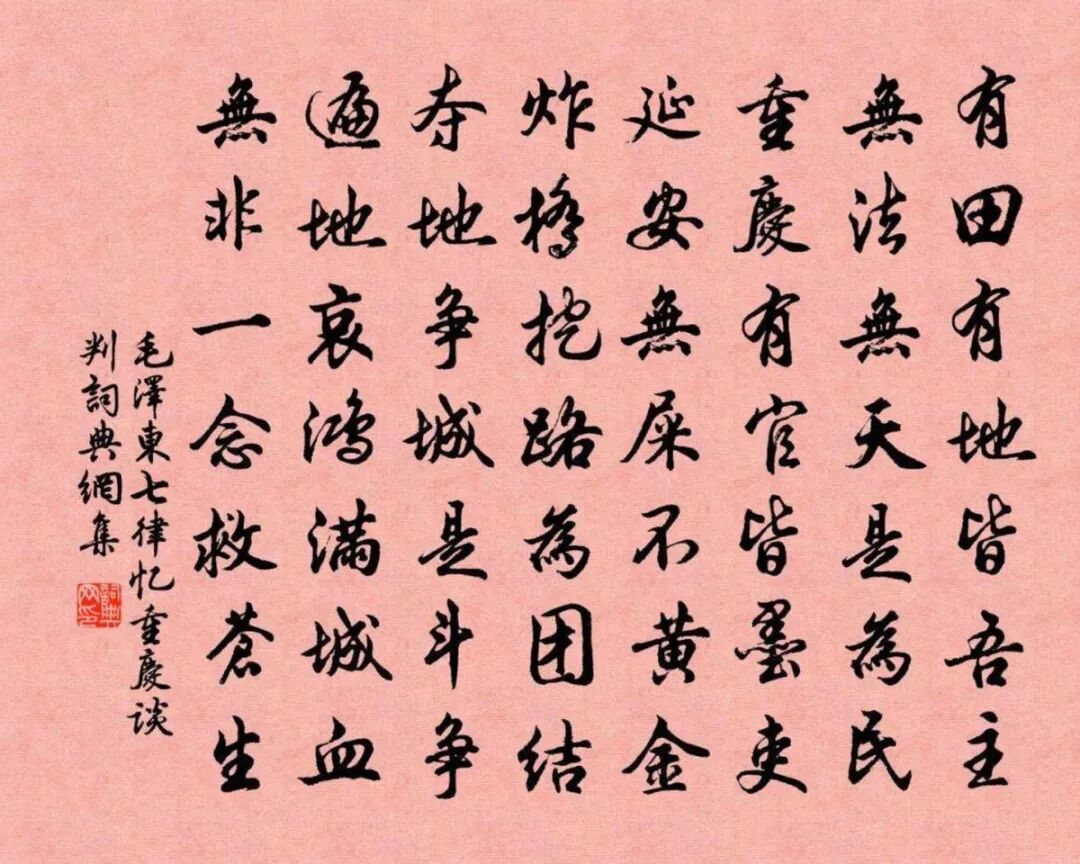 有田有地皆吾主
無法無天是為民
重慶有官皆墨吏
延安無屎不黄金
炸橋挖路為团结
夺地争城是斗争
遍地哀鸿满城血
無非一念救蒼生
毛澤東七律忆重慶谈
判詞典網集